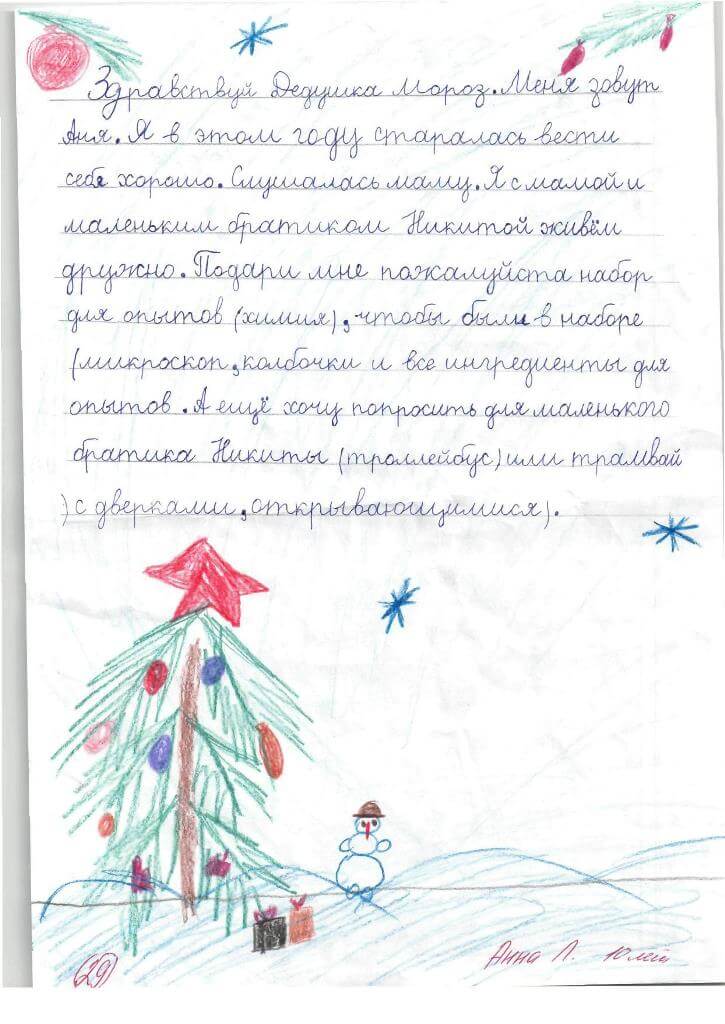 Здравствуй Дедушка Мороз. Меня зовут
Аня. Я в этом году старалась вести
себя хорошо. Слушалась маму. Я с мамой и
маленьким братиком Никитой живём
дружно. Подари мне пожалуйста набор
для опытов (химия), чтобы были в наборе
(микроскоп, колбочки и все ингредиенты для
опытов. А ещё хочу попросить для маленького
братика Никиты (троллейбус) или трамвай
) с дверками, открывающимися).
Анна Л. 10 лет
29